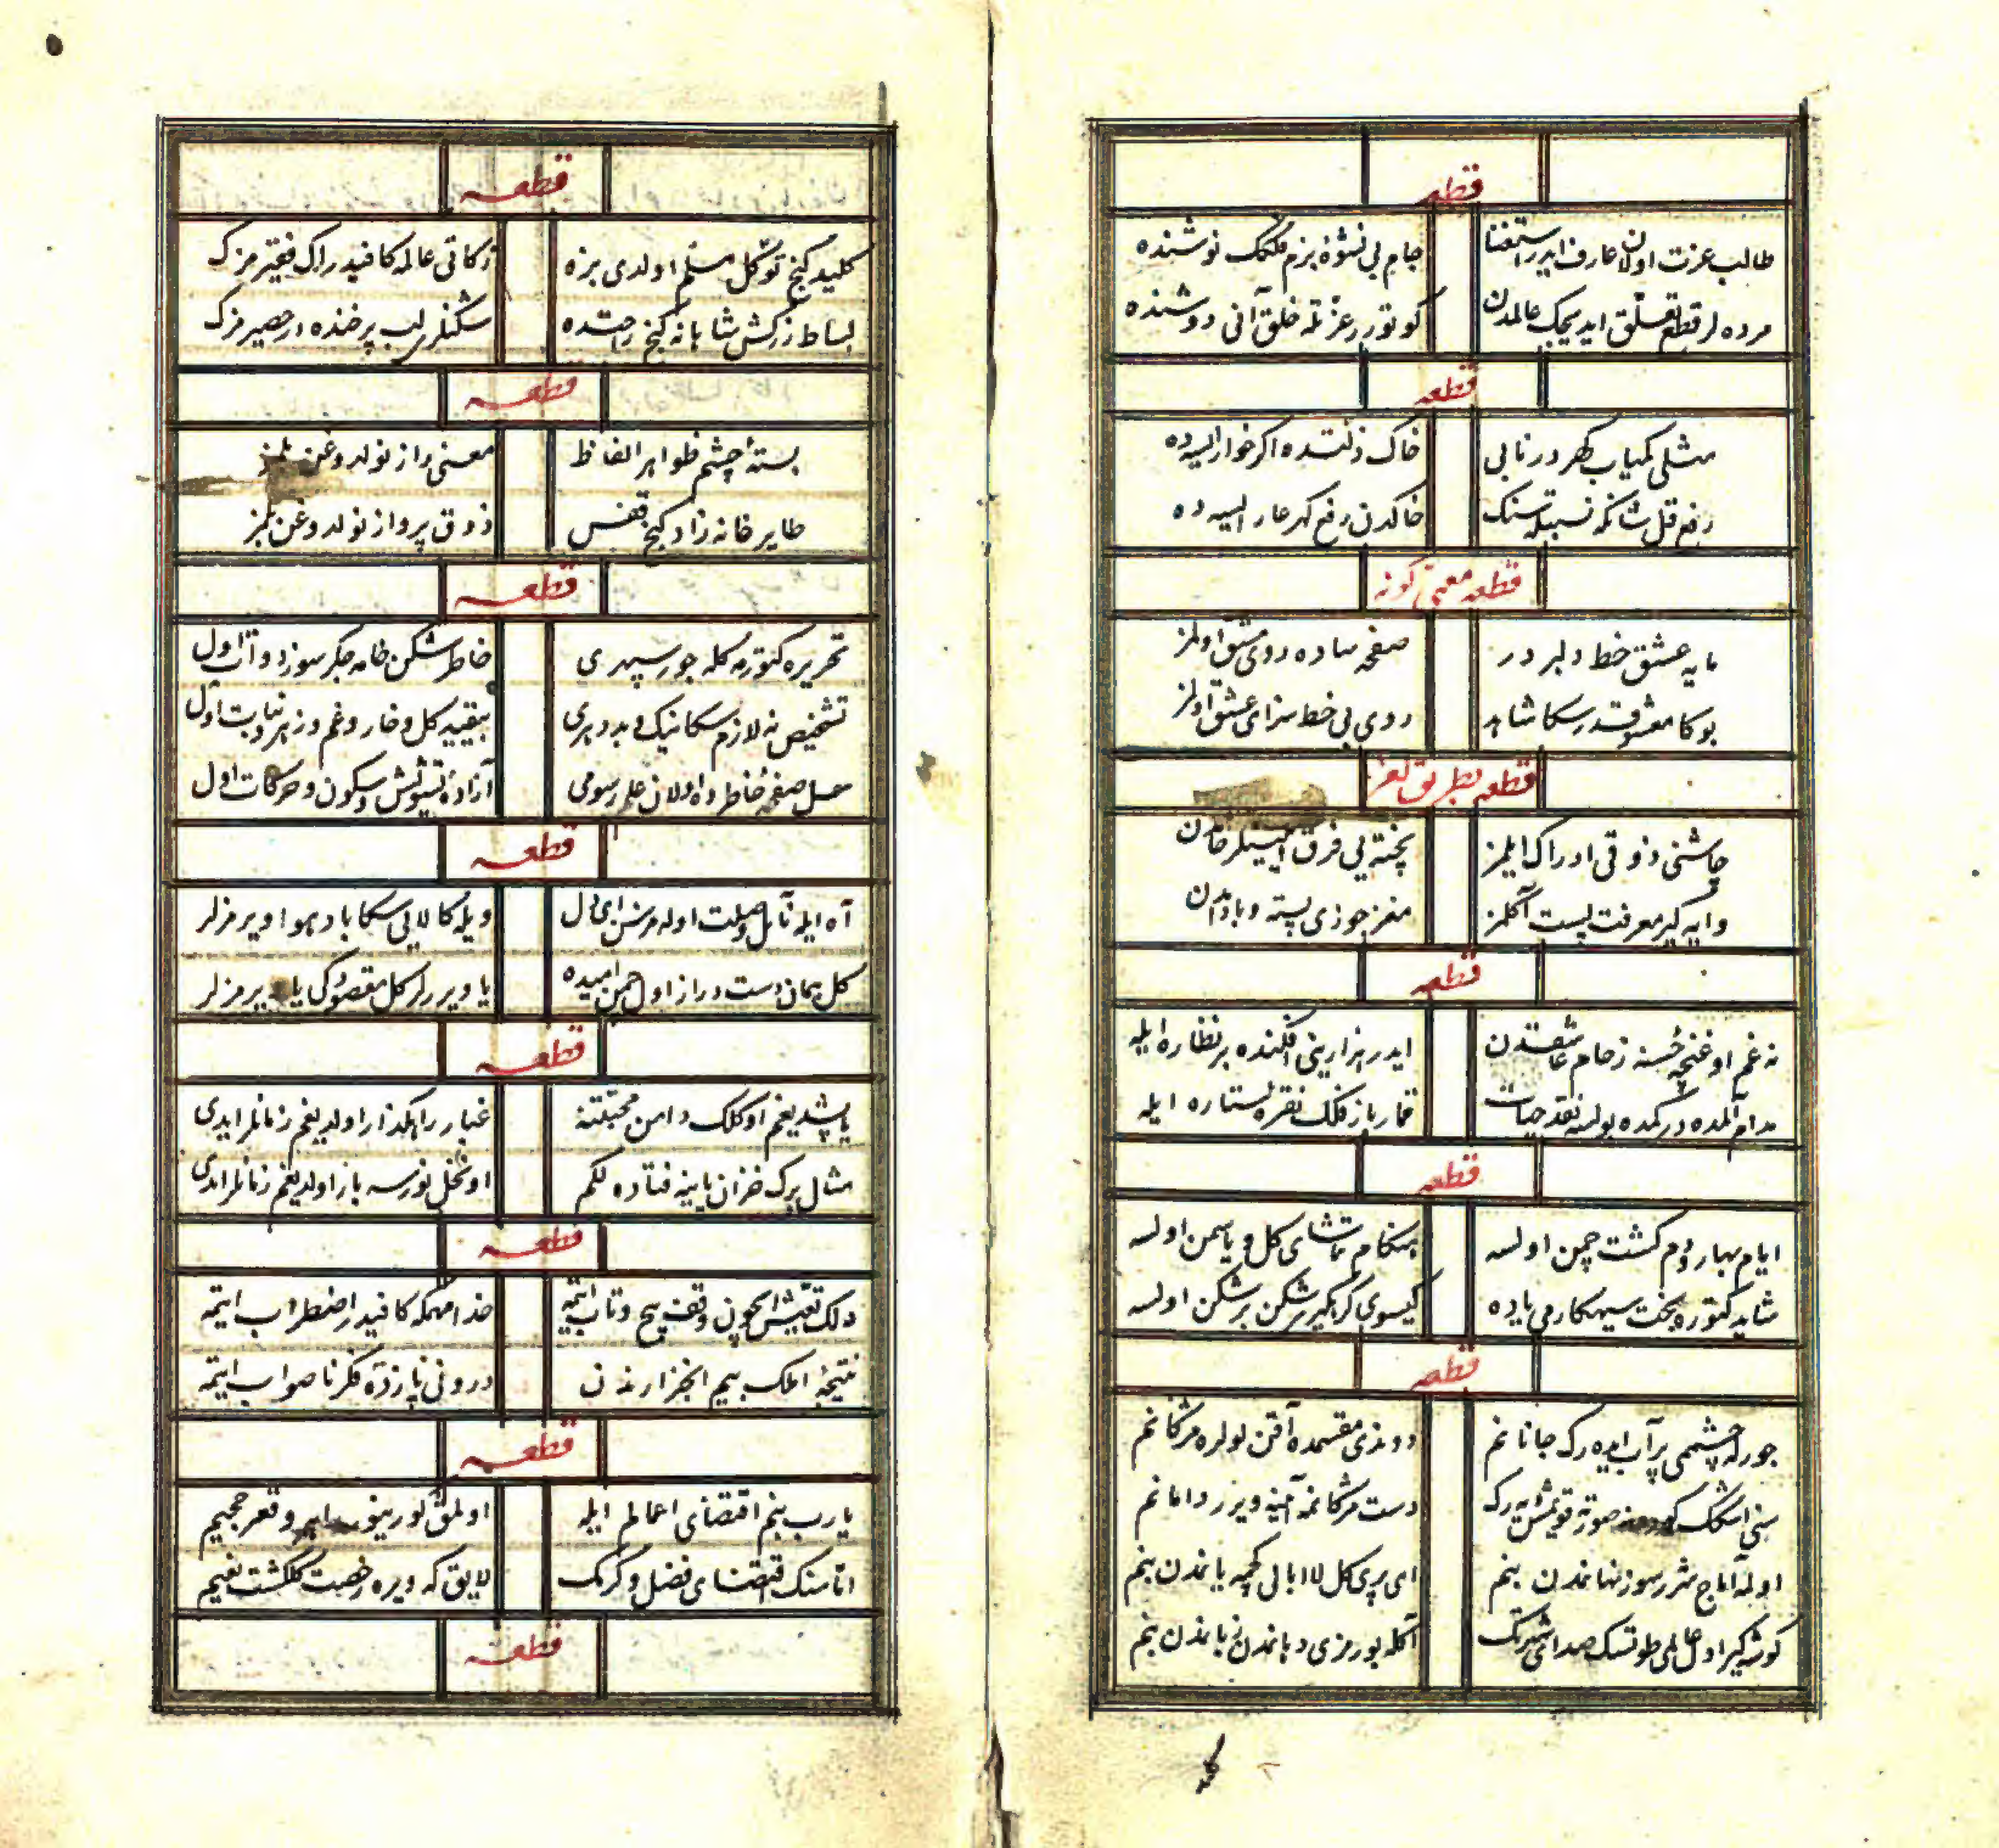 قطعه
طالب عزت اولان عارف ايدر استغنا جام بی نشوهٔ بزم فلكك نوشنده
مرده لر قطع تعلق ايديجك عالمدن كوتورر عزتله خلق آنی دوشنده
قطعه
مثلی كمياب كهر در نابی خاك ذلتده اكر خوار ايسه ده
رفع قل شانكه نسبتله سنك خاكدن رفع كهر عار ايسه ده
قطعه معمی كونه
مايه عشق خط دلبر در صفحه ساده روی مشق اولمز
بوكا معشوقه در سكا شاهد روی بی خط سزای عشق اولمز
قطعه بطريق لغز
چاشنی ذوقی ادراك ايلمز پخته يی فرق ايتمينلر خامدن
وايه كير معرفت پست آكلمز مغز جوزی پسته و بادامدن
قطعه
نه غم او غنچهٔ حسنه زحام عاشقدن ايدر هزارينی افكنده بر نظاره ايله
مدام آلمده در كمده بولسه نقد حيات قمار باز فلك نقرهٔ ستاره ايله
قطعه
ايام بهار و دم كشت چمن اولسه هنكام تماشای كل و ياسمن اولسه
شايد كتوره بخت سيهكارمی ياده كيسوی كرهكير شكن بر شكن اولسه
قطعه
جورله چشمی پر آب ايده رك جانانم دوندی مقسمده آقن لولره مژكانم
سنی اشكك صورته قويمش يه رك دست مژكانمه آينه ويرر دامانم
اوله آماج شرر سوز نهاندن بنم ای پری كل لاابالی كچمه ياندن بنم
كوشه كير اول عالمی طوتسك صدای شهرتك آكله بو رمزی دهاندن زباندن بنم
كليد
قطعه
كليد كنج توكل مسلم اولدی بزه زكاتی عالمه كافيدر اك فقيرمزك
بساط زركش شاهانه كنج راحتده شكنلری لب پر خنده در حصيرمزك
قطعه
بستهٔ چشم ظواهر الفاظ معنی راز نولدوغن بلمز
طاير خانه زاد كنج قفس ذوق پرواز نولدوغن بلمز
قطعه
تحريره كتورمه كله جور سپهری خاطر شكن خامه جكر سوز دوات اول
تشخيص نه لازم سكا نيك و بد دهری بيقيد كل و خار و غم و زهر و نبات اول
غسل صفحهٔ خاطرده اولان علم رسومی آزادهٔ تشويش و سكون و حركات اول
قطعه
آه ايله نائل وصلت اوله مزسن ای دل ويله كالايی سكا باد هوا ويرمزلر
كل همان دست دراز اول چمن اميده يا ويررلر كل مقصودكی يا ويرمزلر
قطعه
ياپشديغم او كلك دامن محبتنه غبار راهكذار اولديغم زمانلر ايدی
مثال برك خزان پاينه فتاده لكم او نخل نورسه باز اولديغم زمانلر ايدی
قطعه
دلك تعيش ايچون وقف پيچ و تاب ايتمه خدا مهمكه كافيدر اضطراب ايتمه
نتيجه املك بيم انجزاردن درونی پازدهٔ فكر ناصواب ايتمه
قطعه
يارب بنم اقتضای اعمالم ايله اولمق كورينور قعر جحيم
اما سنك اقتضای فضل و كرمك لايق كه ويره رخصت كلكشت نعيم
قطعه